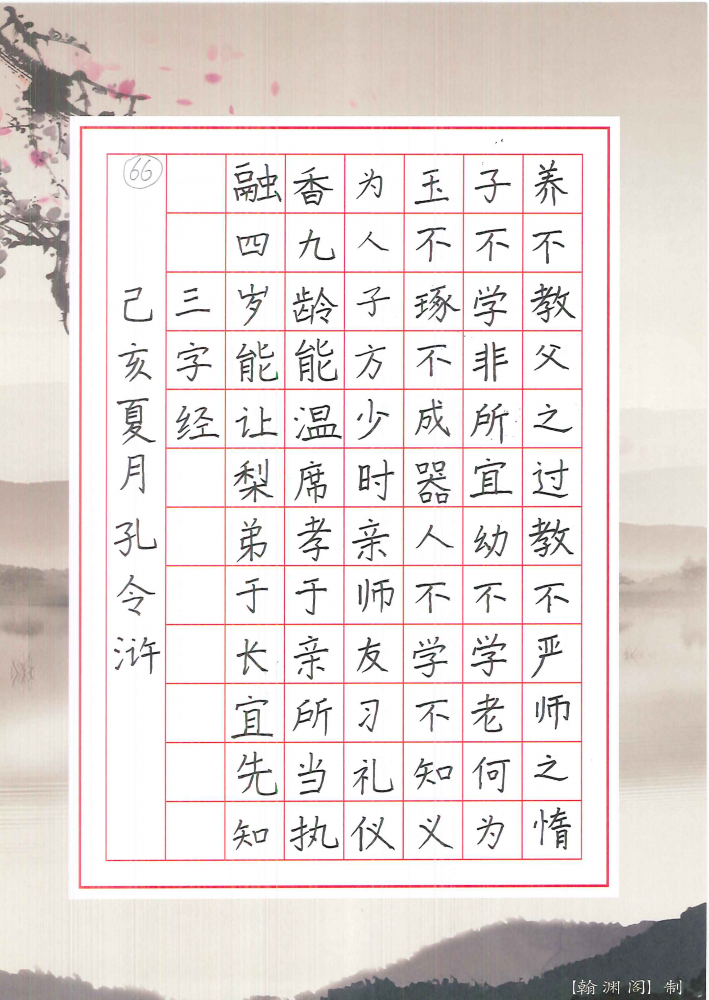 养不教父之过教不严师之惰
子不学非所宜幼不学老何为
玉不琢不成器人不学不知义
为人子方少时亲师友习礼仪
香九龄能温席孝于亲所当执
融四岁能让梨弟于长宜先知
三字经
66
己亥夏月孔令浒
【翰渊阁】制